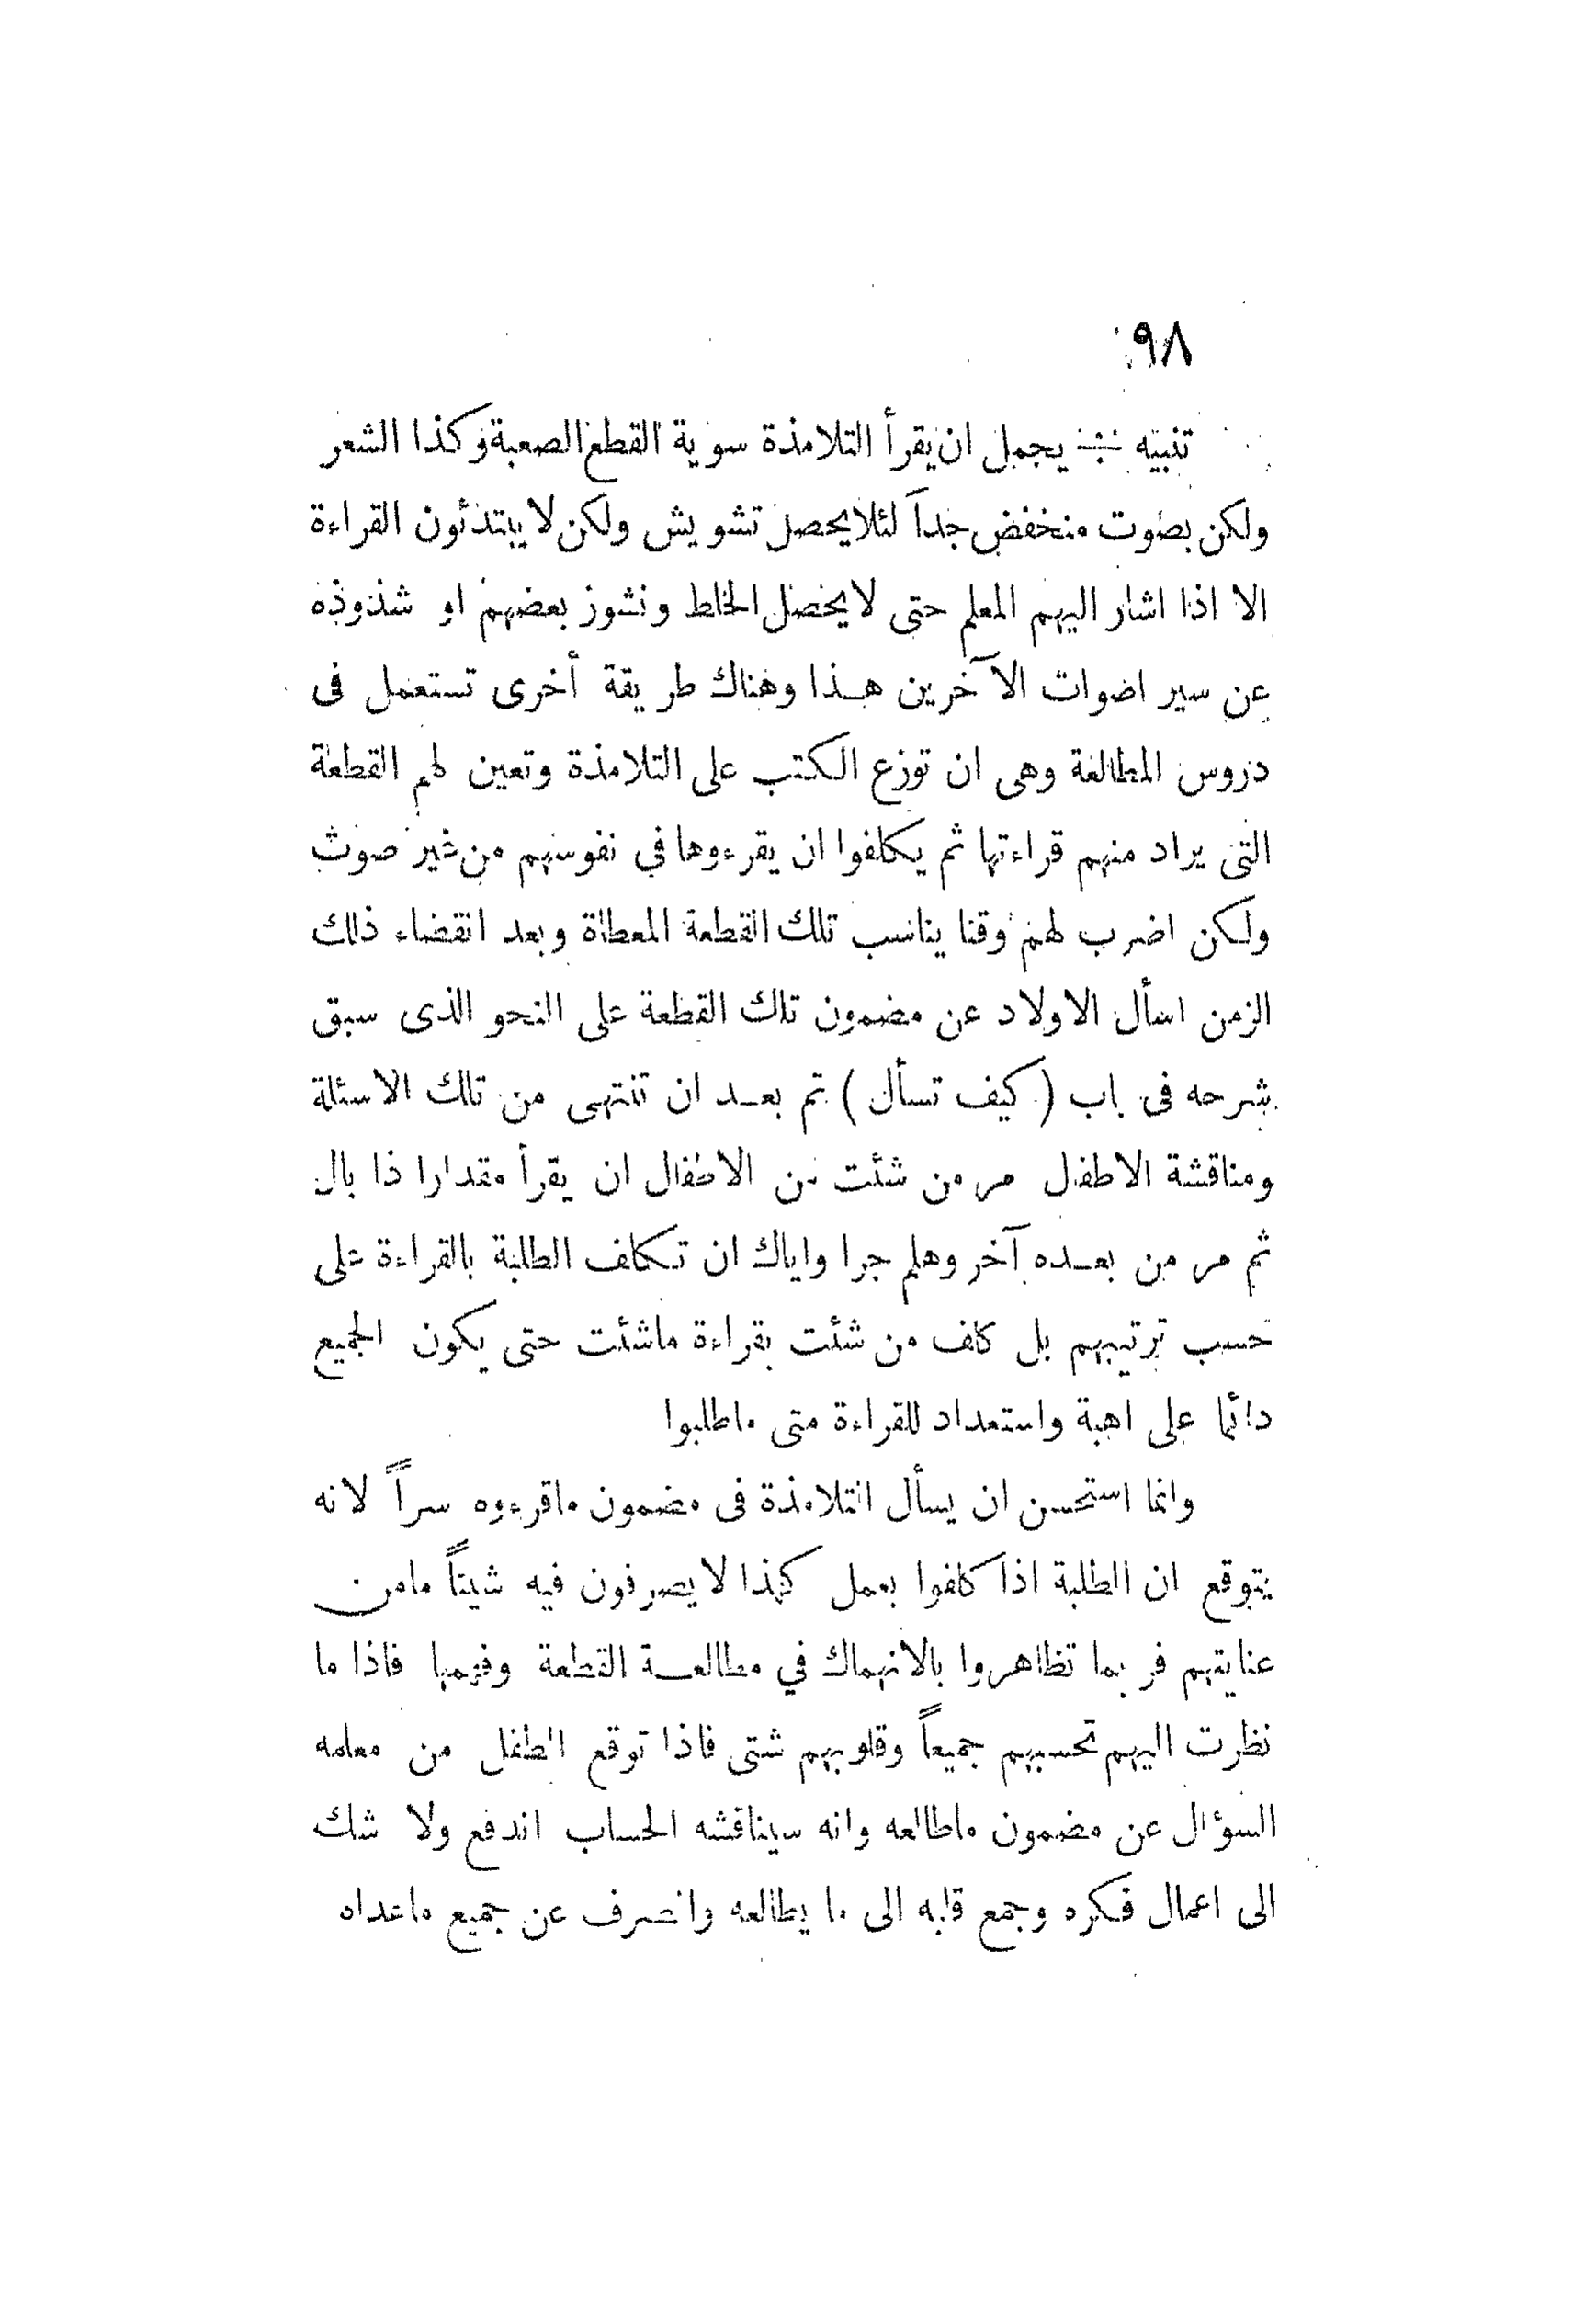 ٩٨
تنبيه ÷ يجمل ان يقرأ التلامذة سوية القطع الصعبة وكذا الشعر
ولكن بصوت منخفض جداً لئلا يحصل تشويش ولكن لا يبتدئون القراءة
الا اذا اشار اليهم المعلم حتى لا يحصل الخلط ونشوز بعضهم او شذوذه
عن سير اصوات الآخرين هذا وهناك طريقة أخرى تستعمل فى
دروس المطالعة وهى ان توزع الكتب على التلامذة وتعين لهم القطعة
التى يراد منهم قراءتها ثم يكلفوا ان يقرءوها في نفوسهم من غير صوت
ولكن اضرب لهم وقتا يناسب تلك القطعة المعطاة وبعد انقضاء ذلك
الزمن اسأل الاولاد عن مضمون تلك القطعة على النحو الذى سبق
شرحه فى باب ( كيف تسأل ) ثم بعد ان تنتهى من تلك الاسئلة
ومناقشة الاطفال مر من شئت من الاطفال ان يقرأ مقدارا ذا بال
ثم مر من بعده آخر وهلم جرا واياك ان تكلف الطلبة بالقراءة على
حسب ترتيبهم بل كلف من شئت بقراءة ماشئت حتى يكون الجميع
دائما على اهبة واستعداد للقراءة متى ماطلبوا
وانما استحسن ان يسأل التلامذة فى مضمون ماقرءوه سراً لانه
يتوقع ان الطلبة اذا كلفوا بعمل كهذا لا يصرفون فيه شيئاً مامن
عنايتهم فربما تظاهروا بالانهماك في مطالعة القطعة وفهمها فاذا ما
نظرت اليهم تحسبهم جميعاً وقلوبهم شتى فاذا توقع الطفل من معلمه
السؤال عن مضمون ماطالعه وانه سيناقشه الحساب اندفع ولا شك
الى اعمال فكره وجمع قلبه الى ما يطالعه وانصرف عن جميع ماعداه